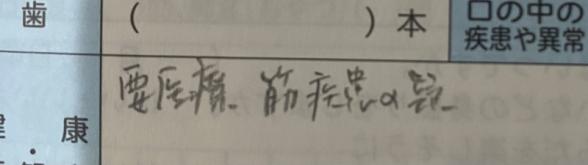 歯 ( )本 口の中の
疾患や異常
要医療、筋疾患の
康